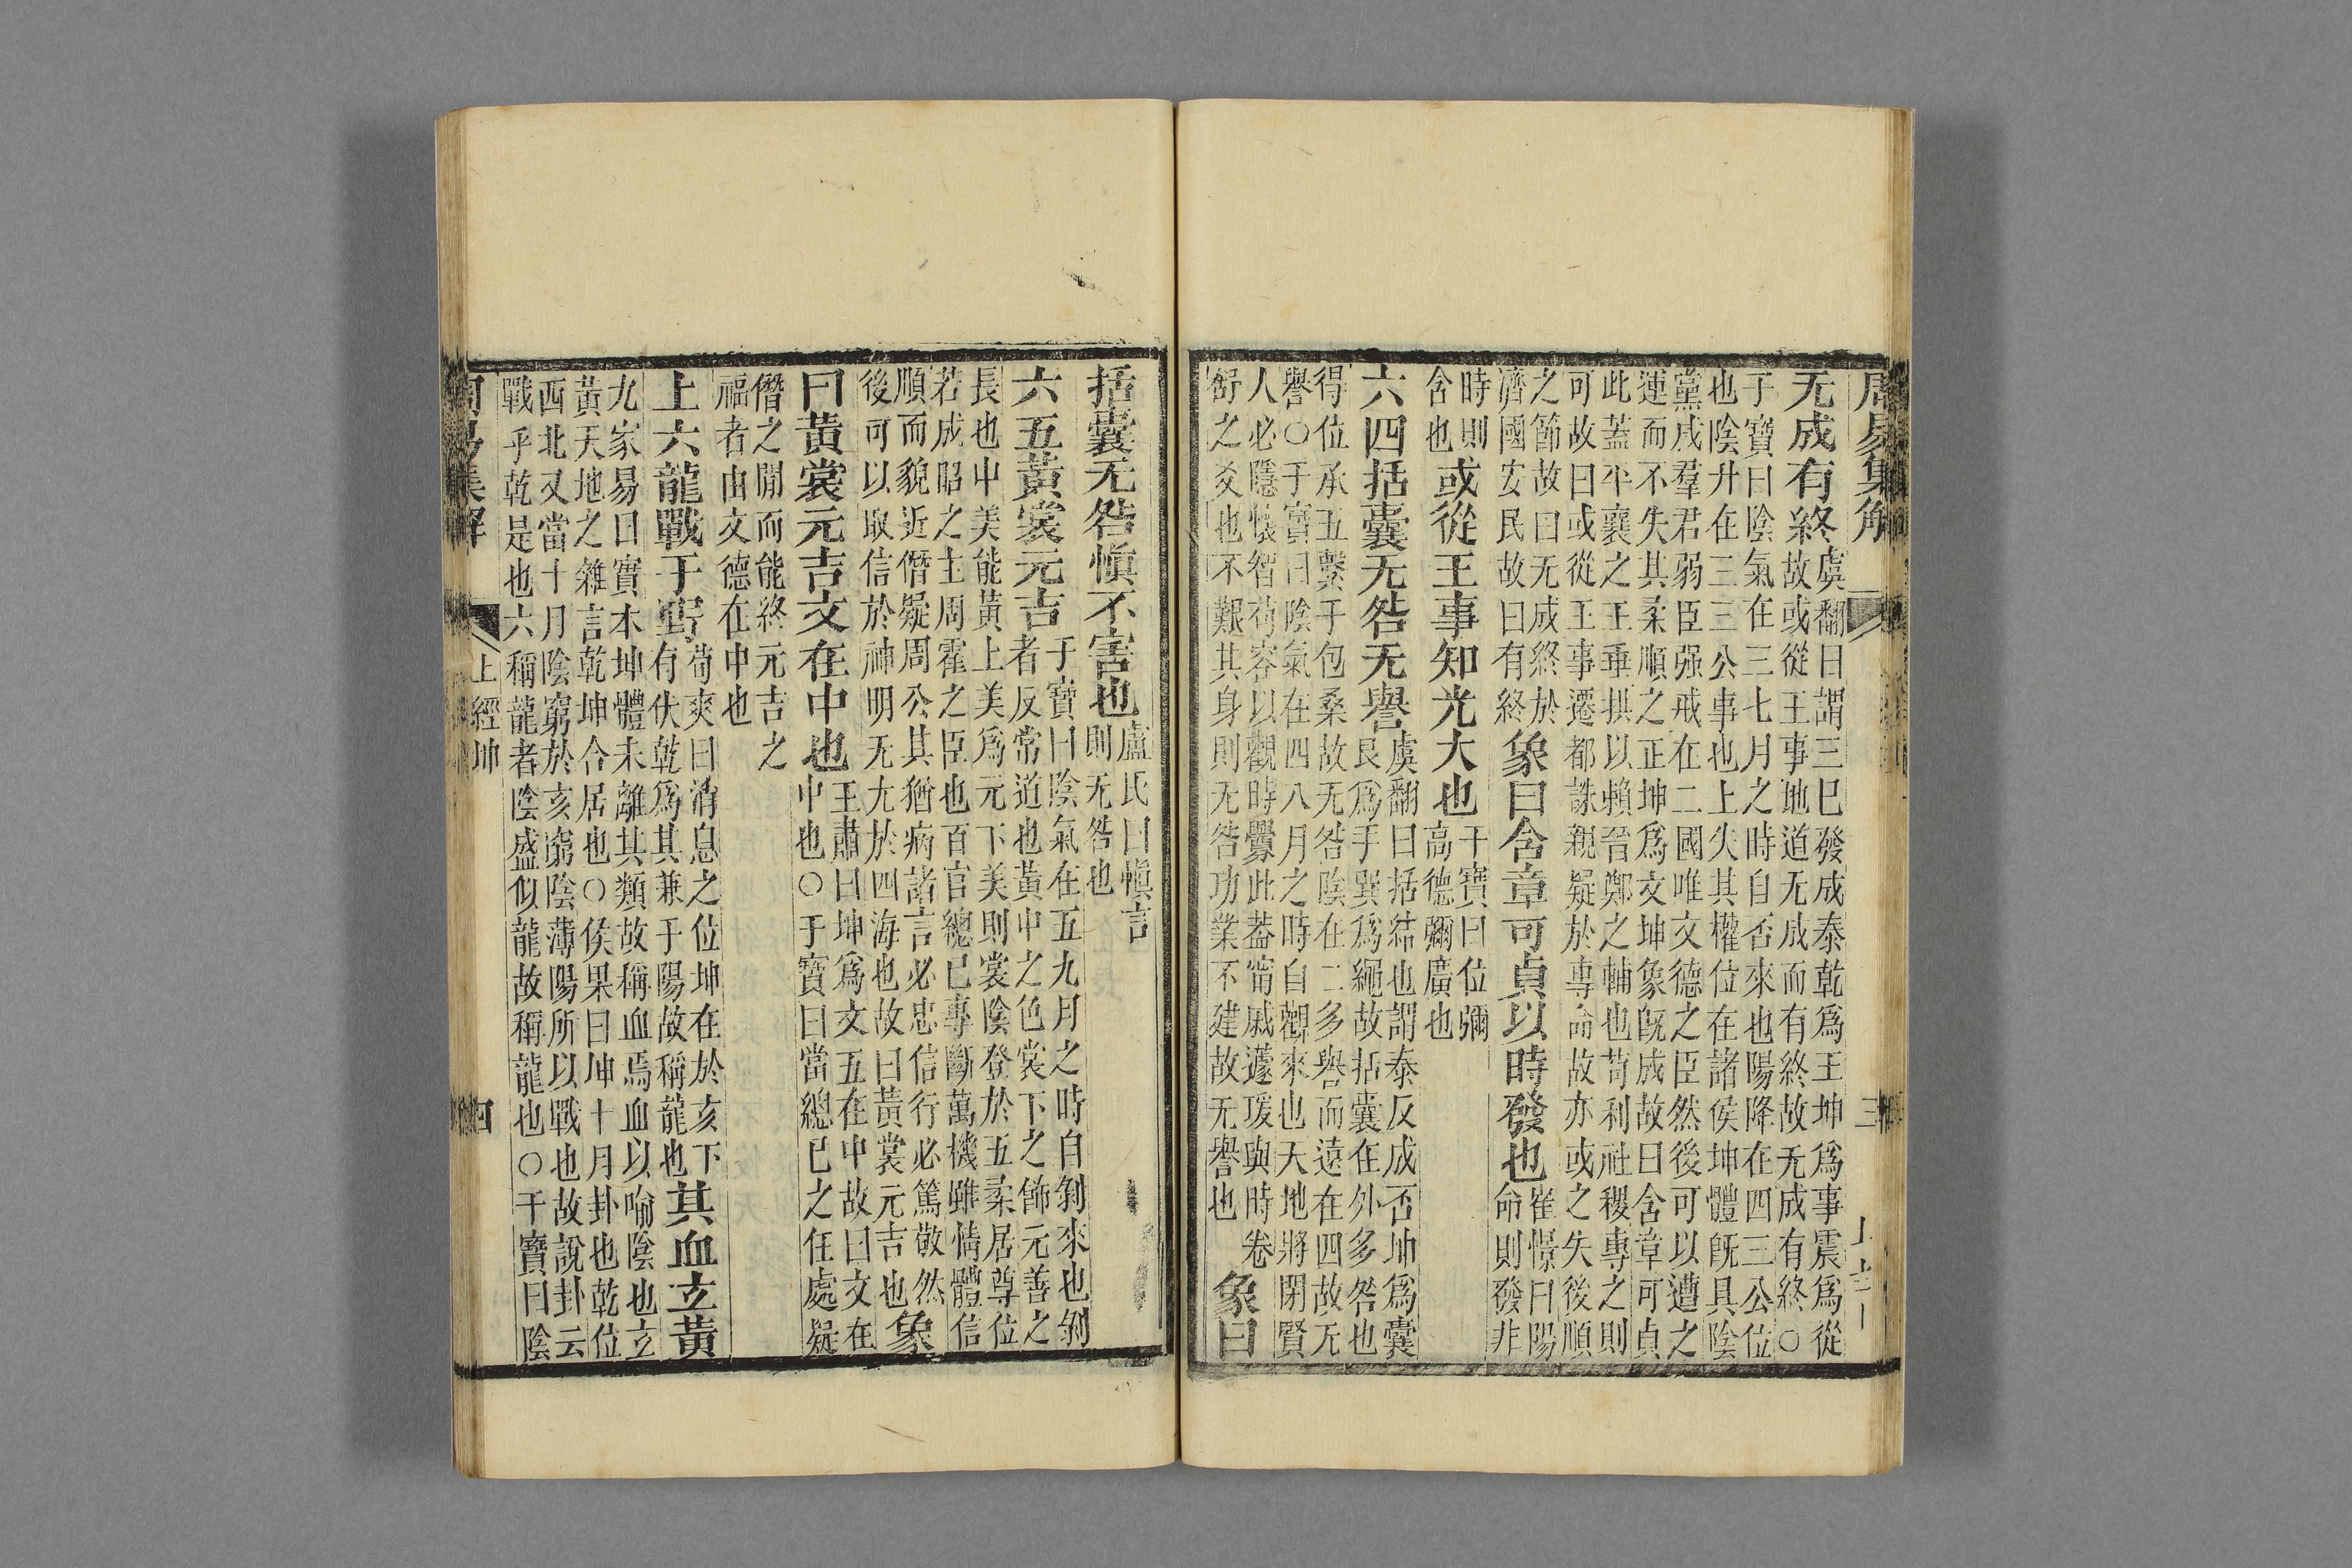 周易集解 三
无成有終
虞翻曰謂三巳發成泰乾爲王坤爲事震爲從
故或從王事地道无成而有終故无成有終○
于寶曰陰氣在三七月之時自否來也陽降在四三公位
也陰升在三三公事也上失其權位在諸侯坤體旣具陰
黨成羣君弱臣强戒在二國唯文德之臣然後可以遭之
運而不失其柔順之正坤爲文坤象旣成故曰含章可貞
此蓋平襄之王垂拱以賴晉鄭之輔也苟利社稷專之則
可故曰或從王事遷都誅親疑於專命故亦或之失後順
之節故曰无成終於
濟國安民故曰有終
象曰含章可貞以時發也
崔憬曰陽
命則發非
時則
含也
或從王事知光大也
干寶曰位彌
高德彌廣也
六四括囊无咎无譽
虞翻曰括結也謂泰反成否坤爲囊
艮爲手巽爲繩故括囊在外多咎也
得位承五繫于包桑故无咎陰在二多譽而遠在四故无
譽○于寶曰陰氣在四八月之時自觀來也天地將閉賢
人必隱懷智苟容以觀時釁此蓋甯戚蘧瑗與時卷
舒之爻也不艱其身則无咎功業不建故无譽也
象曰
括囊无咎愼不害也
盧氏曰愼言
則无咎也
六五黃裳元吉
于寶曰陰氣在五九月之時自剝來也剝
者反常道也黃中之色裳下之飾元善之
長也中美能黃上美爲元下美則裳陰登於五柔居尊位
若成昭之主周霍之臣也百官總已專斷萬機雖情體信
順而貌近僭疑周公其猶病諸言必忠信行必篤敬然
後可以取信於神明无尤於四海也故曰黃裳元吉也
象
曰黃裳元吉文在中也
王肅曰坤爲文五在中故曰文在
中也○于寶曰當總已之任處疑
僭之閒而能終元吉之
福者由文德在中也
上六龍戰于野
荀爽曰消息之位坤在於亥下
有伏乾爲其兼于陽故稱龍也
其血玄黃
九家易曰實本坤體未離其類故稱血焉血以喻陰也玄
黃天地之雜言乾坤合居也○侯果曰坤十月卦也乾位
西北又當十月陰窮於亥窮陰薄陽所以戰也故說卦云
戰乎乾是也六稱龍者陰盛似龍故稱龍也○干寶曰陰
周易集解 上經坤 四